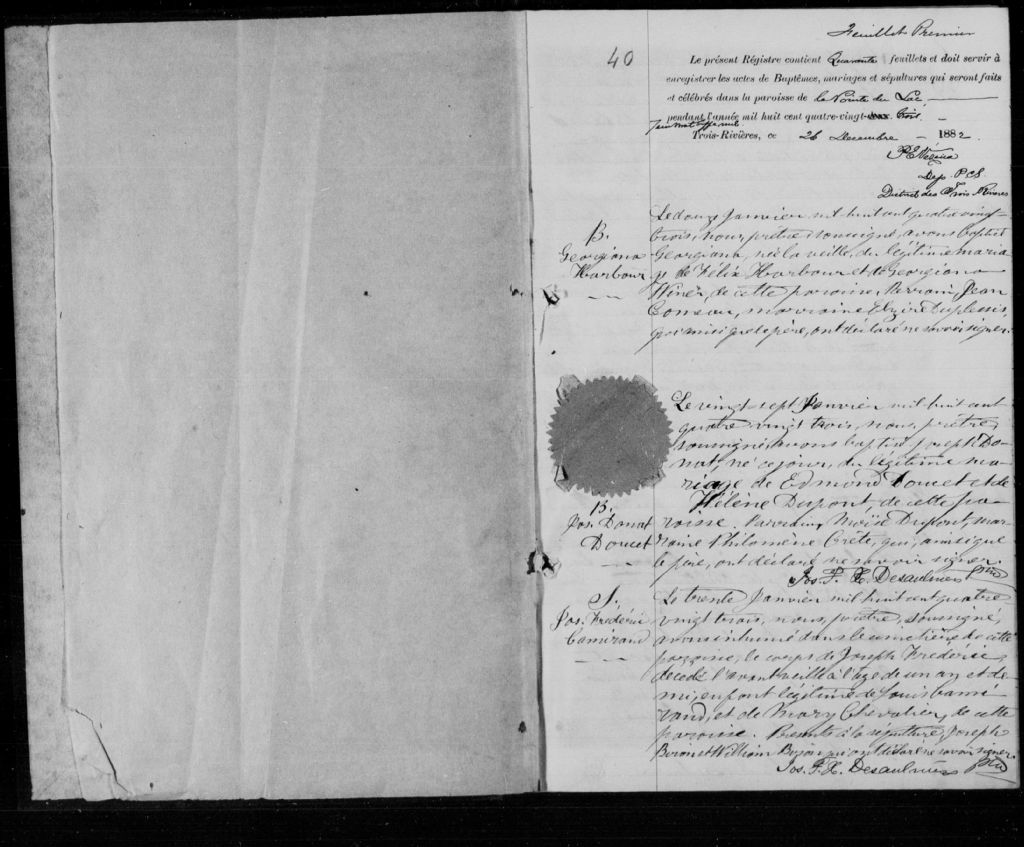 Feuillet Premier
40
Le présent Régistre contient Quarante feuillets et doit servir à
enregistrer les actes de Baptêmes, mariages et sépultures qui seront faits
et célébrés dans la paroisse de la Pointe du Lac
pendant l'année mil huit cent quatre-vingt-deux trois.
Trois-Rivières, ce 26 Decembre 1882.
Dep. P.C.S.
District des Trois Rivieres
B.
Georgiana
Harbour
Le douze Janvier mil huit cent quatre vingt-
trois, nous, prêtre soussigné, avons baptisé
Georgiana, née la veille, du légitime maria-
ge de Félix Harbour et de Georgiana
de cette paroisse. Parrain Jean
marraine Elzire Duplessis,
qui ainsi que le père, ont déclaré ne savoir signer.
B.
Jos. Donat
Doucet
Le vingt-sept Janvier mil huit cent
quatre vingt trois, nous, prêtre,
soussigné, avons baptisé Joseph Do-
nat, né ce jour, du légitime ma-
riage de Edmond Doucet et de
Hélène Dupont, de cette pa-
roisse. Parrain Moïse Dupont, mar-
raine Philomène Crête, qui, ainsi que
le père, ont déclaré ne savoir signer.
Jos. F. X. Desaulniers Ptre
S.
Jos. Frédéric
Camirand
Le trente Janvier mil huit cent quatre-
vingt trois, nous, prêtre, soussigné,
avons inhumé dans le cimetière de cette
paroisse, le corps de Joseph Frédéric,
décédé l'avant veille à l'age de un an et de-
mi, enfant légitime de Louis Cami-
rand, et de Mary Chevalier, de cette
paroisse. Présents à la sépulture, Joseph
et William qui ont déclaré ne savoir signer
Jos. F. X. Desaulniers Ptre